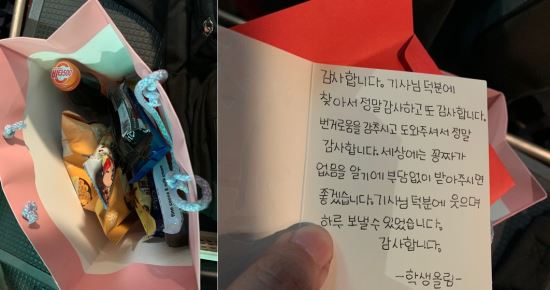 감사합니다. 기사님 덕분에
찾아서 정말감사하고 또 감사합니다.
번거로움을 감추시고 도와주셔서 정말
감사합니다. 세상에는 꽁짜가
없음을 알기에 부담없이 받아주시면
좋겠습니다. 기사님 덕분에 웃으며
하루 보낼수 있었습니다.
감사합니다.
-학생올림-